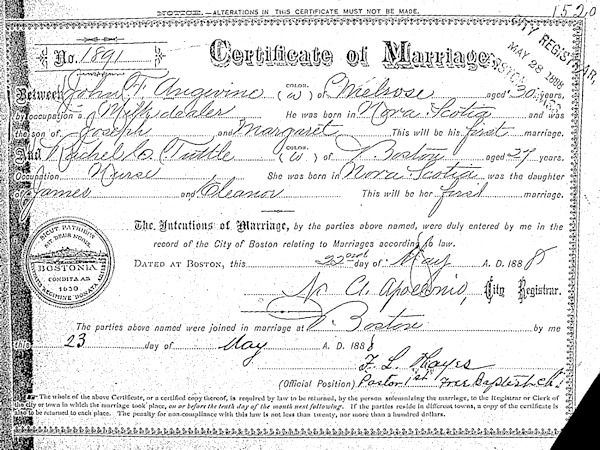 NOTICE.—ALTERATIONS IN THIS CERTIFICATE MUST NOT BE MADE.
1520
No. 1891 Certificate of Marriage
CITY REGISTRAR,
MAY 28 1888
BOSTON, MASS.
Between John F. Angivine COLOR. (W) of Melrose aged 30 years,
by occupation a Milkdealer He was born in Nova Scotia and was
the son of Joseph and Margaret This will be his first marriage.
And Rachel C. Tuttle COLOR. (W) of Boston aged 27 years.
Occupation Nurse She was born in Nova Scotia was the daughter
of James and Eleanor This will be her first marriage.
The Intentions of Marriage, by the parties above named, were duly entered by me in the
record of the City of Boston relating to Marriages according to law.
SICUT PATRIBUS SIT DEUS NOBIS
BOSTONIA
CONDITA AD.
1630
CIVITATIS REGIMINE DONATA AD 1822
DATED AT BOSTON, this 22nd day of May A. D. 1888
N. A. Apollonio, City Registrar.
The parties above named were joined in marriage at Boston by me
this 23 day of May A. D. 1888
F. L. Hayes
(Official Position) Pastor 1st Free Baptist Ch.
The whole of the above Certificate, or a certified copy thereof, is required by law to be returned, by the person solemnizing the marriage, to the Registrar or Clerk of
the city or town in which the marriage took place, on or before the tenth day of the month next following. If the parties resided in different towns, a copy of the certificate is
also to be returned to each place. The penalty for non-compliance with this law is not less than twenty, nor more than a hundred dollars.